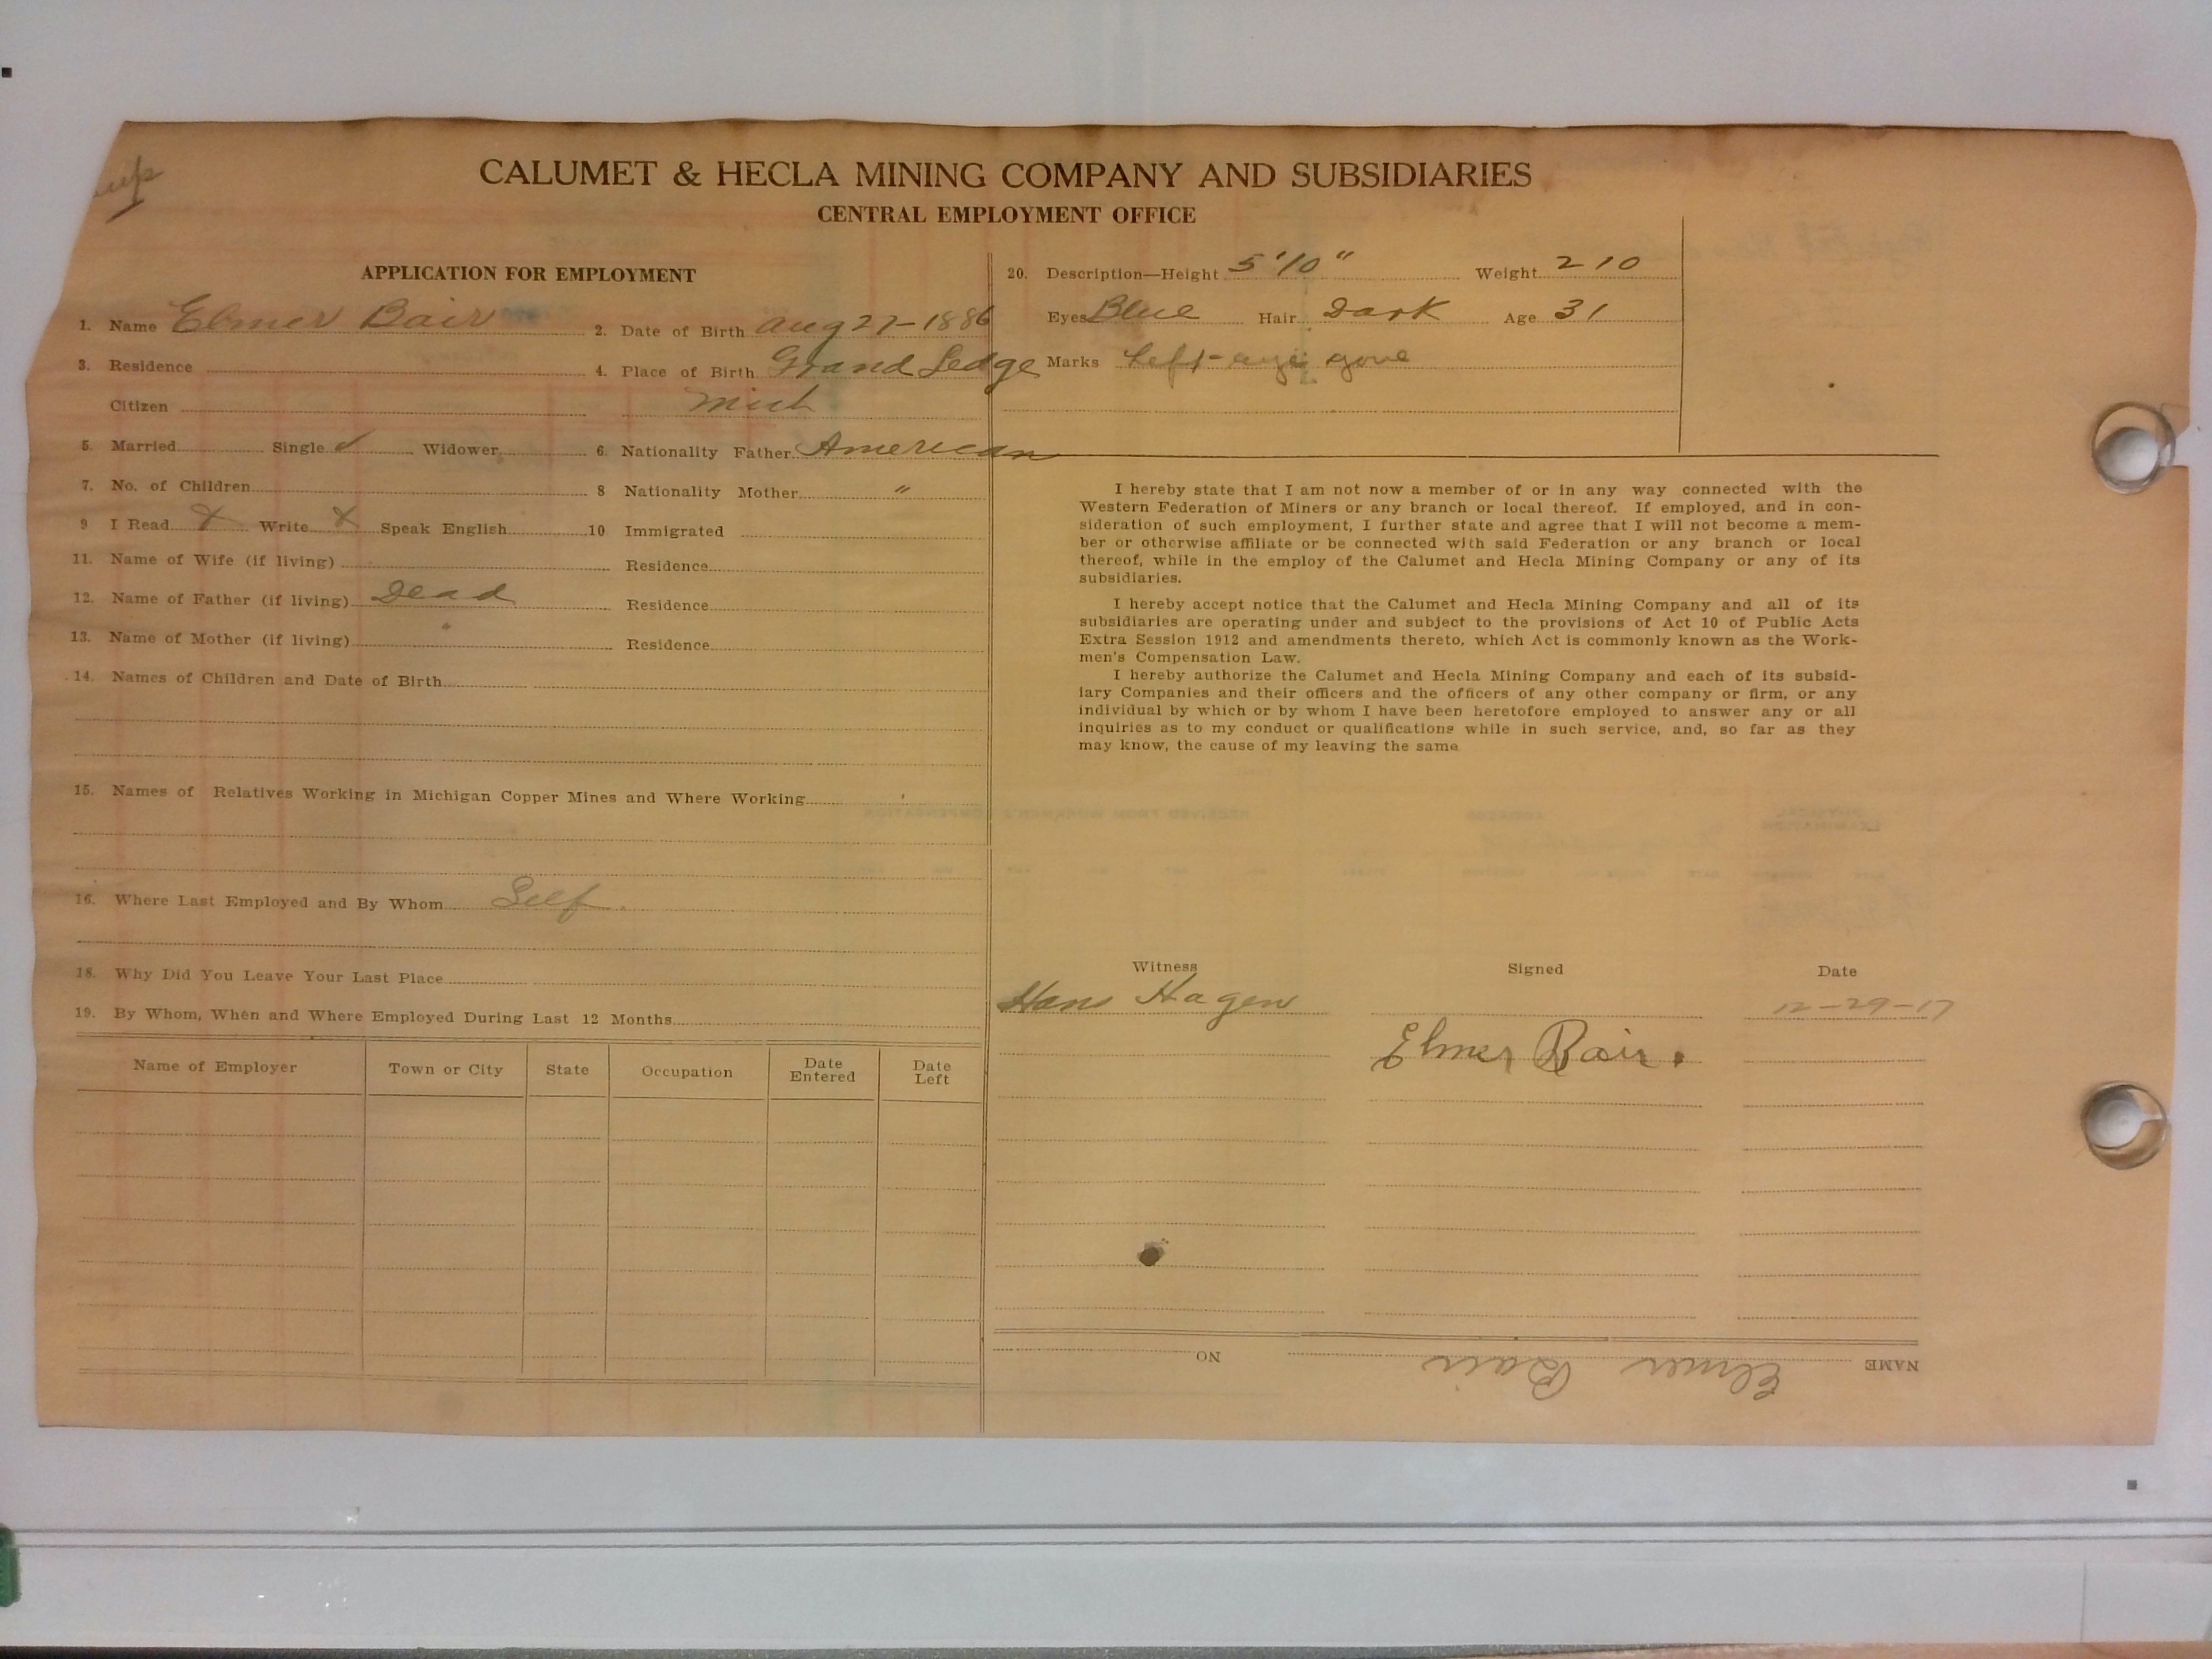 CALUMET & HECLA MINING COMPANY AND SUBSIDIARIES
CENTRAL EMPLOYMENT OFFICE
APPLICATION FOR EMPLOYMENT
1. Name Elmer Bair 2. Date of Birth Aug 27-1886
3. Residence 4. Place of Birth Grand Ledge
Citizen Mich
5. Married Single ✓ Widower 6. Nationality Father American
7. No. of Children 8 Nationality Mother "
9 I Read X Write X Speak English 10 Immigrated
11. Name of Wife (if living) Residence
12. Name of Father (if living) Dead Residence
13. Name of Mother (if living) " Residence
14. Names of Children and Date of Birth
15. Names of Relatives Working in Michigan Copper Mines and Where Working
16. Where Last Employed and By Whom Self.
18. Why Did You Leave Your Last Place
19. By Whom, When and Where Employed During Last 12 Months
Name of Employer Town or City State Occupation Date Entered Date Left
20. Description—Height 5'10" Weight 210
Eyes Blue Hair Dark Age 31
Marks Left-eye gone
I hereby state that I am not now a member of or in any way connected with the
Western Federation of Miners or any branch or local thereof. If employed, and in con-
sideration of such employment, I further state and agree that I will not become a mem-
ber or otherwise affiliate or be connected with said Federation or any branch or local
thereof, while in the employ of the Calumet and Hecla Mining Company or any of its
subsidiaries.
I hereby accept notice that the Calumet and Hecla Mining Company and all of its
subsidiaries are operating under and subject to the provisions of Act 10 of Public Acts
Extra Session 1912 and amendments thereto, which Act is commonly known as the Work-
men's Compensation Law.
I hereby authorize the Calumet and Hecla Mining Company and each of its subsid-
iary Companies and their officers and the officers of any other company or firm, or any
individual by which or by whom I have been heretofore employed to answer any or all
inquiries as to my conduct or qualifications while in such service, and, so far as they
may know, the cause of my leaving the same
Witness Signed Date
Hans Hagen 12-29-17
Elmer Bair.
NAME Elmer Bair NO